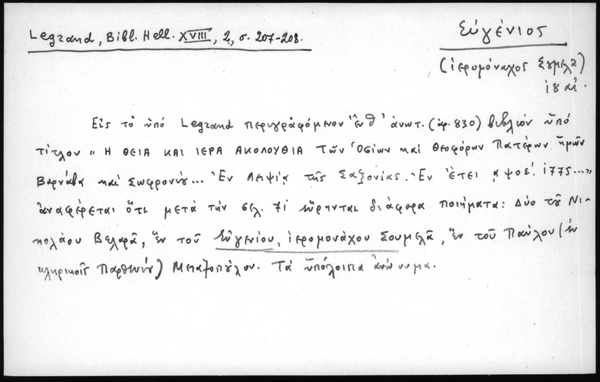 Legrand, Bibl. Hell. XVIII, 2, σ. 207-208.
Εὐγένιος
(ἱερομόναχος Σουμελᾶ)
ιη αἰ.
Εἰς τὸ ὑπὸ Legrand περιγραφόμενον ἐνθ' ἀνωτ. (ἀρ. 830) βιβλίον ὑπὸ
τίτλον " Η ΘΕΙΑ ΚΑΙ ΙΕΡΑ ΑΚΟΛΟΥΘΙΑ Τῶν Ὁσίων καὶ Θεοφόρων Πατέρων ἡμῶν
Βαρνάβα καὶ Σωφρονίου... Ἐν Λειψίᾳ τῆς Σαξονίας. Ἐν ἔτει αψοε΄. 1775..."
ἀναφέρεται ὅτι μετὰ τὴν σελ. 71 εὕρηνται διάφορα ποιήματα: Δύο τοῦ Νι-
κολάου Βελαρᾶ, ἓν τοῦ Εὐγενίου, ἱερομονάχου Σουμελᾶ, ἓν τοῦ Παύλου (ἐν
κληρικοῖς Παρθενίου) Μεταξοπούλου. Τὰ ὑπόλοιπα ἀνώνυμα.